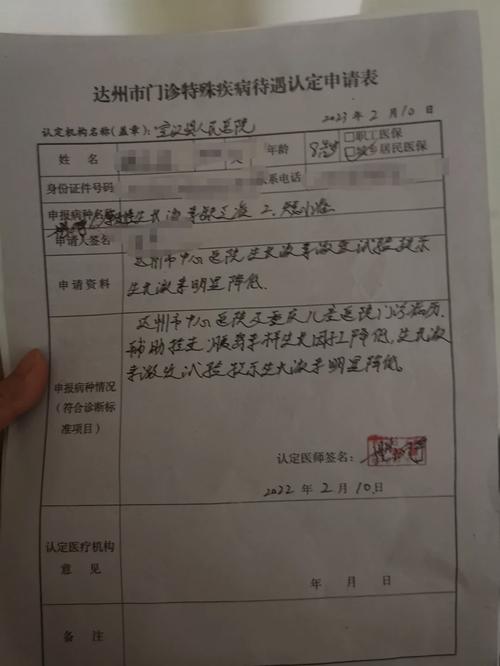 达州市门诊特殊疾病待遇认定申请表
认定机构名称(盖章): 宣汉县人民医院 2023 年 2 月 10 日
姓 名 年龄 8岁 □职工医保
□城乡居民医保
身份证件号码 联系电话
申报病种名称 生长激素缺乏症 2.
申请人签名
申请资料 达州市中心医院生长激素激发试验提示
生长激素明显降低.
申报病种情况
(符合诊断标
准项目)
达州市中心医院及重庆儿童医院门诊病历.
辅助检查:胰岛素样生长因子降低,生长激
素激发试验提示生长激素明显降低。
认定医师签名:
2022 年 2 月 10 日
认定医疗机构
意 见
年 月 日
备 注